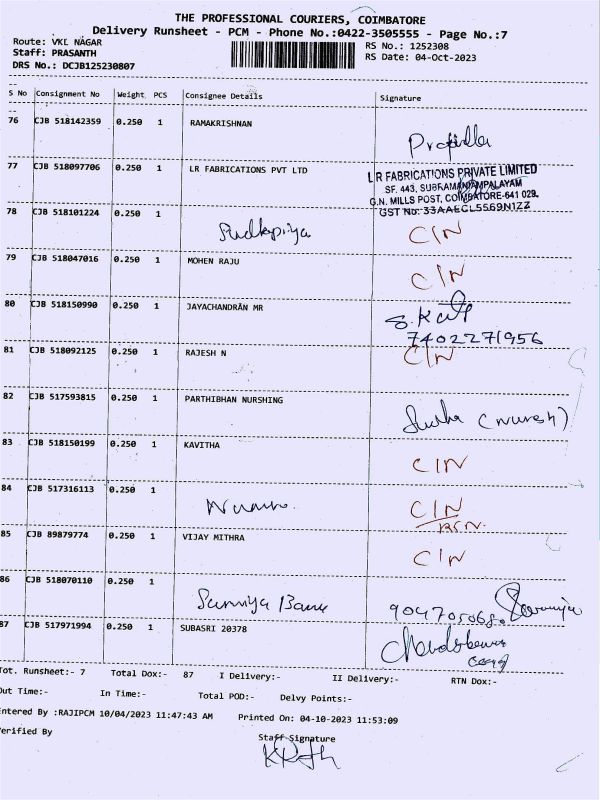 THE PROFESSIONAL COURIERS, COIMBATORE
Delivery Runsheet - PCM - Phone No.:0422-3505555 - Page No.:7
Route: VKL NAGAR
RS No.: 1252308
Staff: PRASANTH
RS Date: 04-Oct-2023
DRS No.: DCJB125230807
S No Consignment No Weight PCS Consignee Details Signature
76 CJB 518142359 0.250 1 RAMAKRISHNAN
77 CJB 518097706 0.250 1 LR FABRICATIONS PVT LTD
LR FABRICATIONS PRIVATE LIMITED
SF. 443, SUBRAMANIAMPALAYAM
G.N. MILLS POST, COIMBATORE-641 029.
GST No: 33AAECL5569N1ZZ
78 CJB 518101224 0.250 1 C/N
79 CJB 518047016 0.250 1 MOHEN RAJU C/N
80 CJB 518150990 0.250 1 JAYACHANDRAN MR
7402271956
81 CJB 518092125 0.250 1 RAJESH N C/N
82 CJB 517593815 0.250 1 PARTHIBHAN NURSHING
83 CJB 518150199 0.250 1 KAVITHA C/N
84 CJB 517316113 0.250 1 C/N
85 CJB 89879774 0.250 1 VIJAY MITHRA C/N
86 CJB 518070110 0.250 1
87 CJB 517971994 0.250 1 SUBASRI 20378
Tot. Runsheet:- 7 Total Dox:- 87 I Delivery:- II Delivery:- RTN Dox:-
Out Time:- In Time:- Total POD:- Delvy Points:-
Entered By :RAJIPCM 10/04/2023 11:47:43 AM Printed On: 04-10-2023 11:53:09
Verified By
Staff Signature